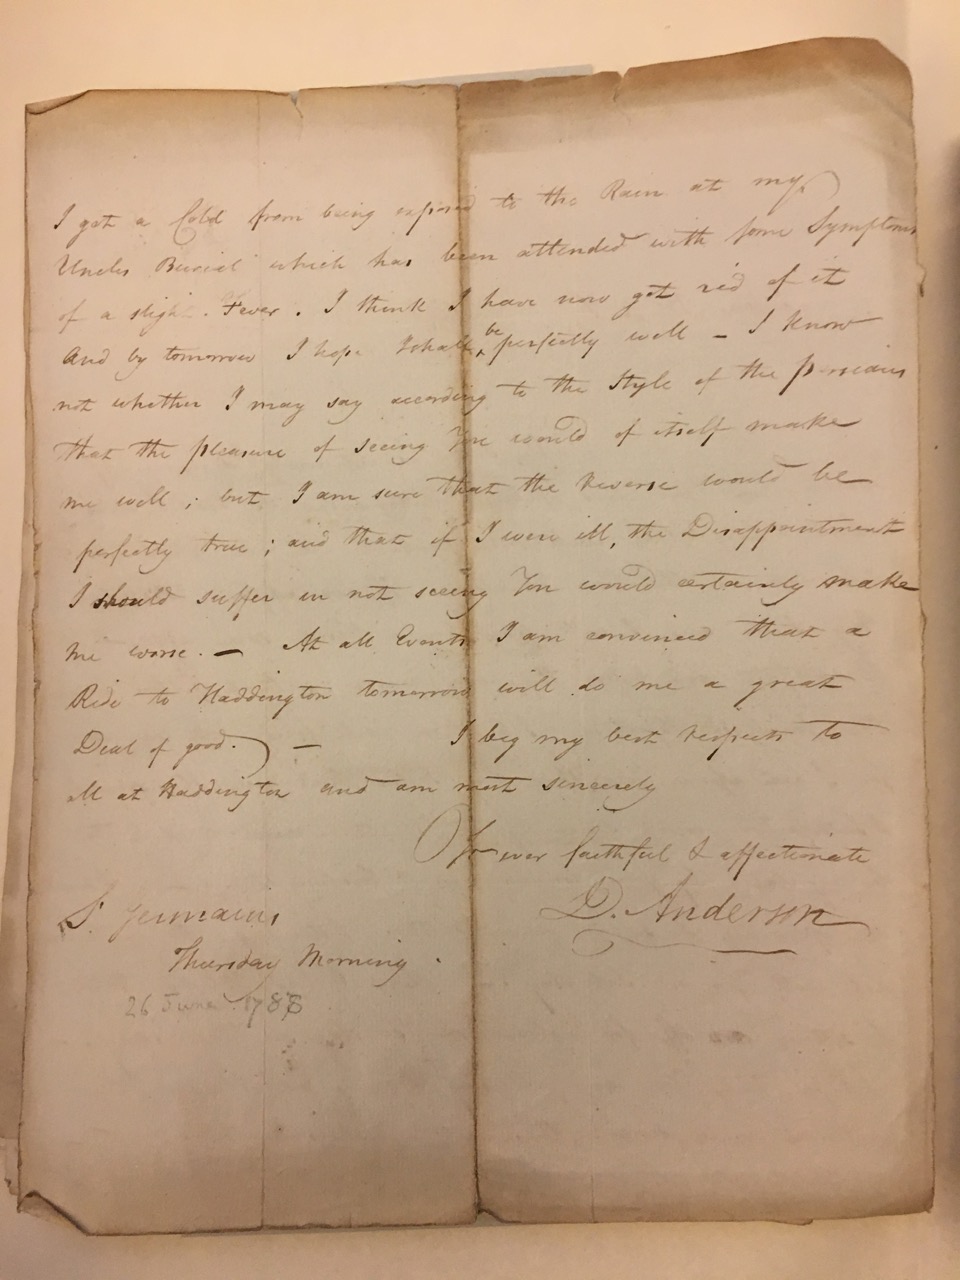 I got a Cold from being exposed to the Rain at my
Uncles Burial which has been attended with some Symptoms
of a slight Fever. I think I have now got rid of it
And by tomorrow I hope I shall be perfectly well – I know
not whether I may say according to the Style of the Persians
that the pleasure of seeing You would of itself make
me well; but I am sure that the Reverse would be
perfectly true; and that if I were ill, the Disappointment
I should suffer in not seeing You would certainly make
me worse. – At all Events I am convinced that a
Ride to Haddington tomorrow will do me a great
Deal of good. – I beg my best Respects to
all at Haddington and am most sincerely
Yr ever faithful & affectionate
D. Anderson
St Germains
Thursday Morning.
26 June 1788